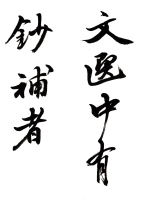 文選中有
鈔補者